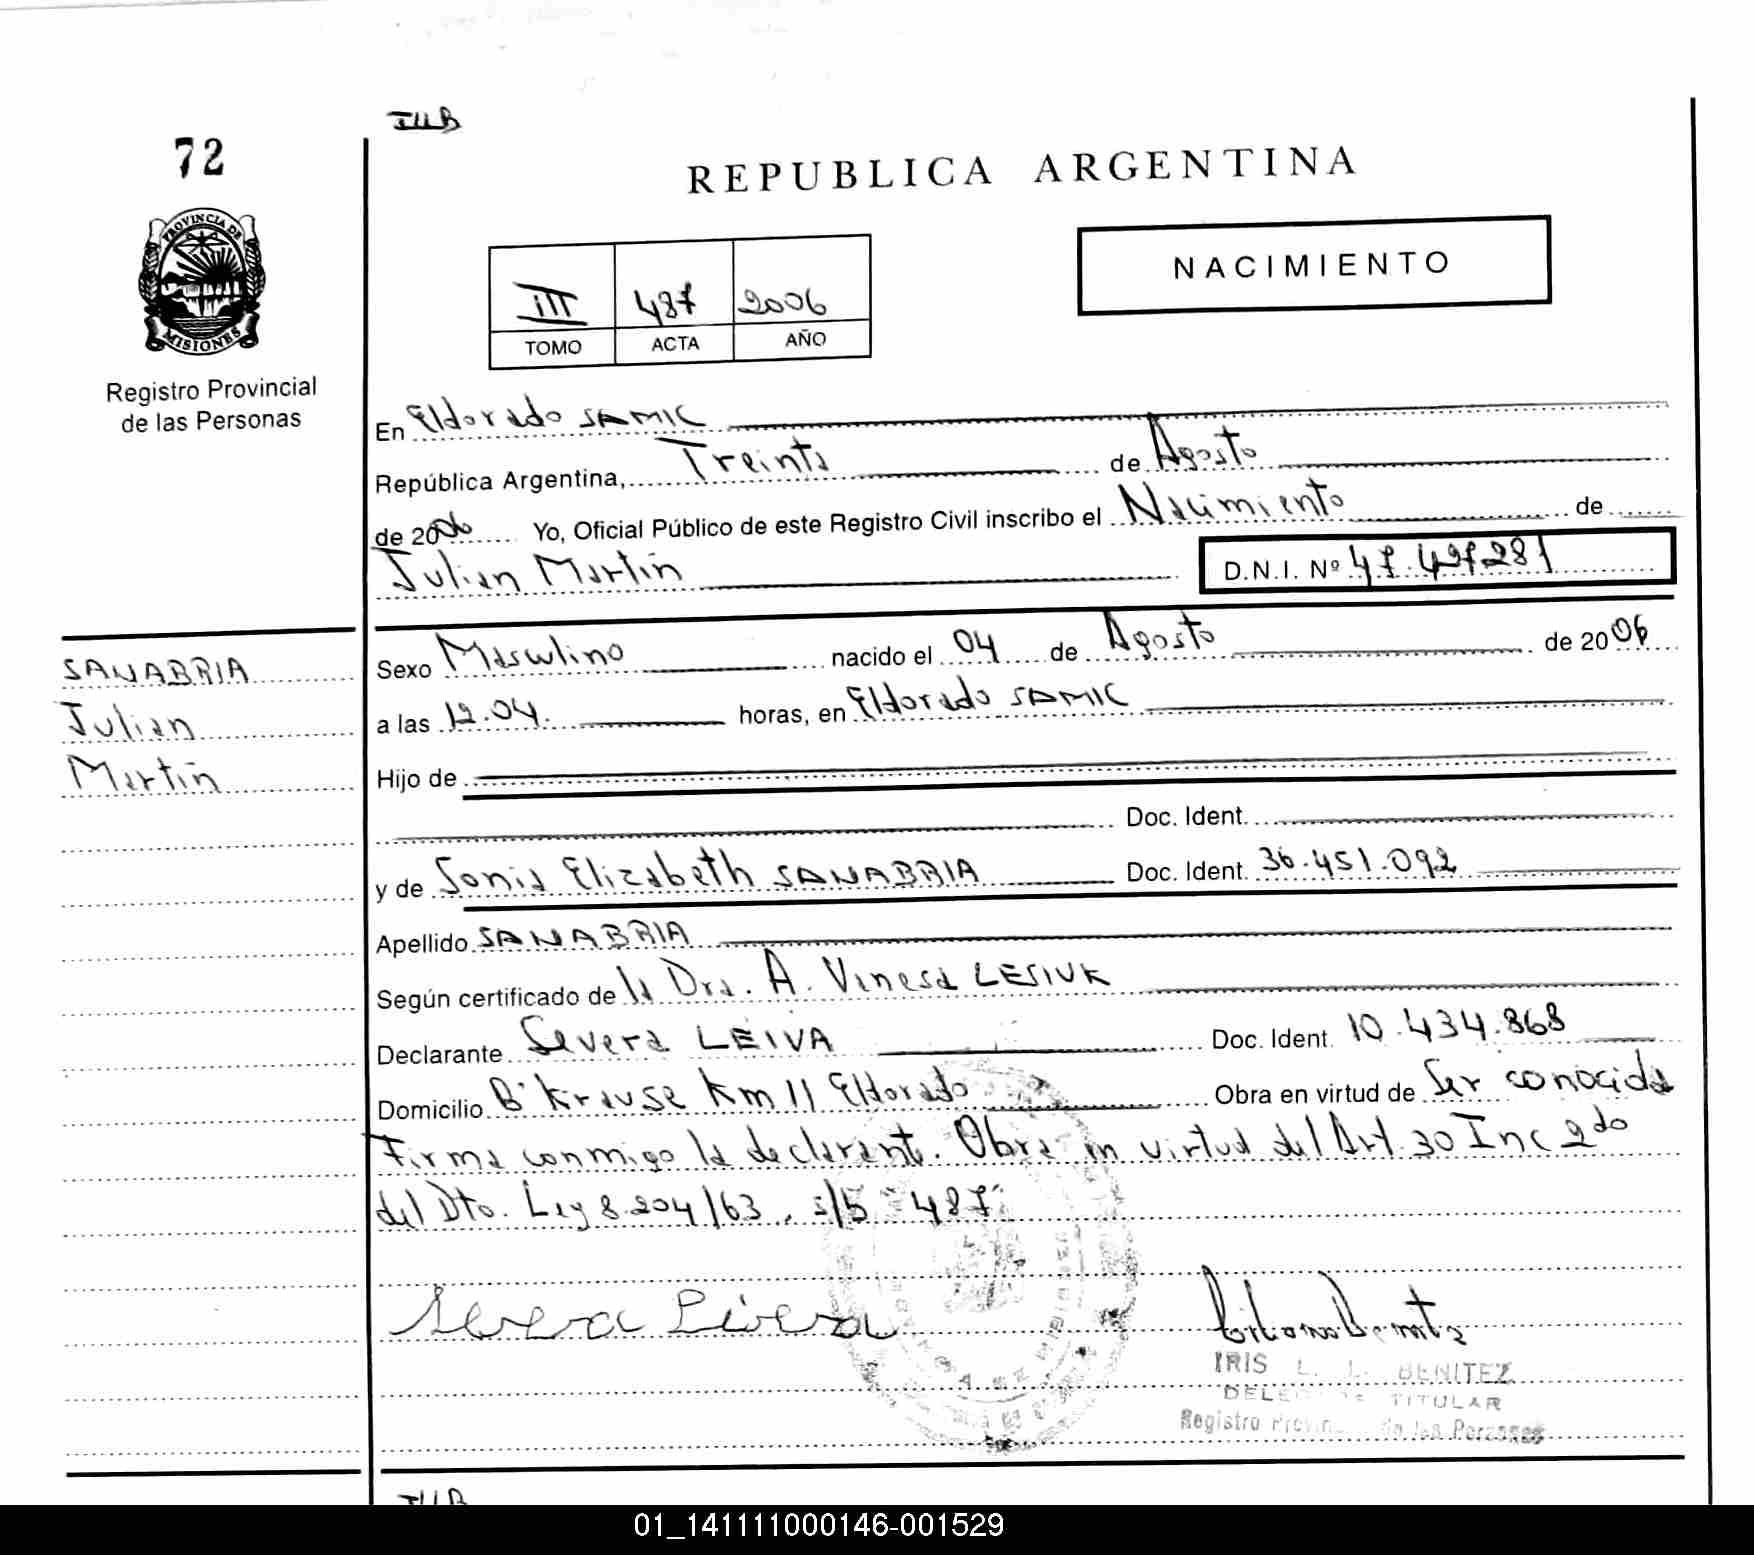 ILLB
72
REPUBLICA ARGENTINA
PROVINCIA DE
MISIONES
NACIMIENTO
III 487 2006
TOMO ACTA AÑO
Registro Provincial
de las Personas
En Eldorado SAMIC
República Argentina, Treinta de Agosto
de 2006 Yo, Oficial Público de este Registro Civil inscribo el Nacimiento de
Julian Martin D.N.I. Nº 47.497.281
SANABRIA
Julian
Martin
Sexo Masculino nacido el 04 de Agosto de 2006
a las 12.04. horas, en Eldorado SAMIC
Hijo de
Doc. Ident.
y de Sonia Elizabeth SANABRIA Doc. Ident. 36.451.092
Apellido SANABRIA
Según certificado de la Dra. A. Vanesa LESIUK
Declarante Severa LEIVA Doc. Ident. 10.434.868
Domicilio B° Krause Km 11 Eldorado Obra en virtud de Ser conocida
Firma conmigo la declarante. Obra en virtud del Art. 30 Inc 2do
del Dto. Ley 8.204/63, s/b "487"
Severa
IRIS L. L. BENITEZ
TITULAR
Registro de las Personas
ILLB
01_141111000146-001529